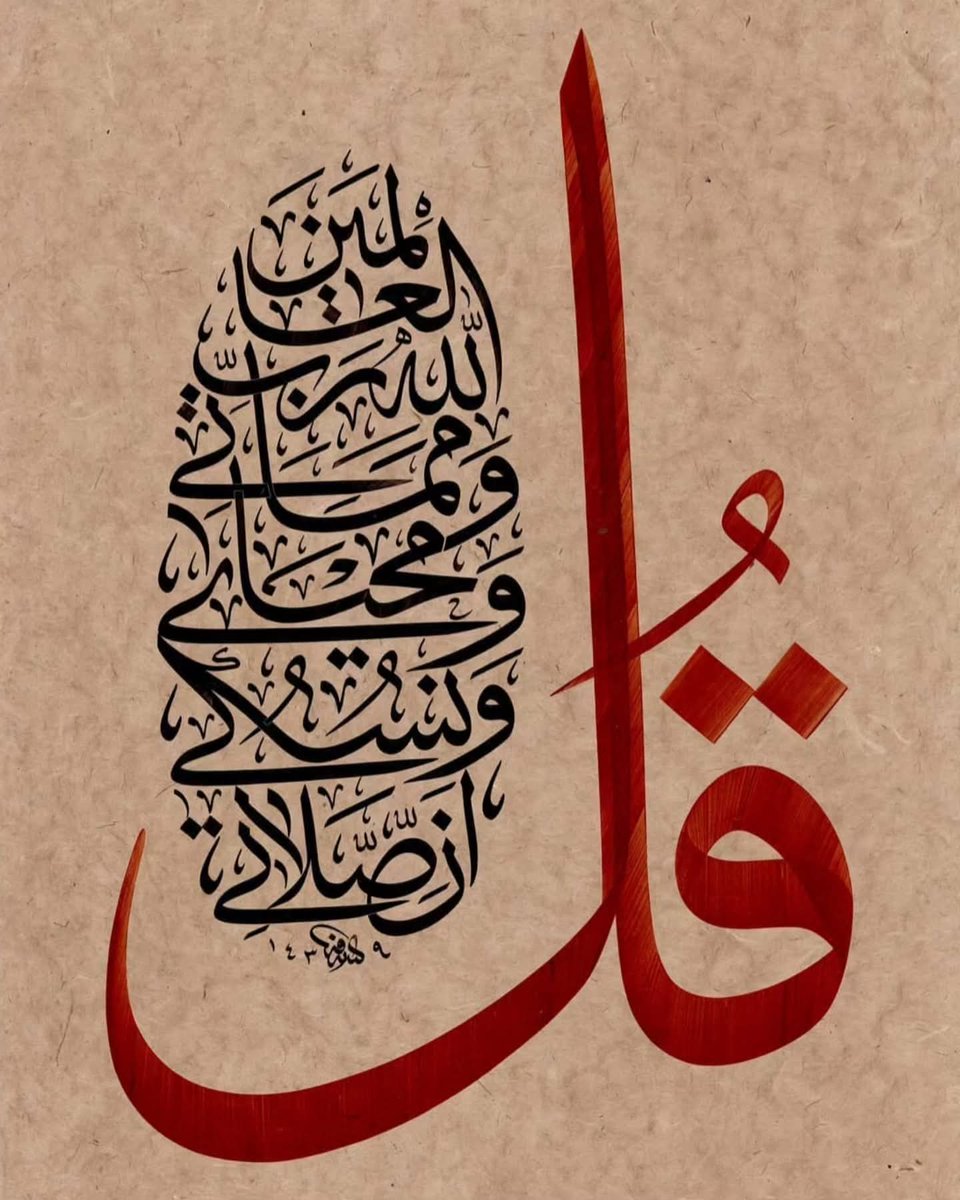 قُل
إن صلاتي
ونسكي
ومحياي
ومماتي
لله رب
العالمين
١٤٣٩